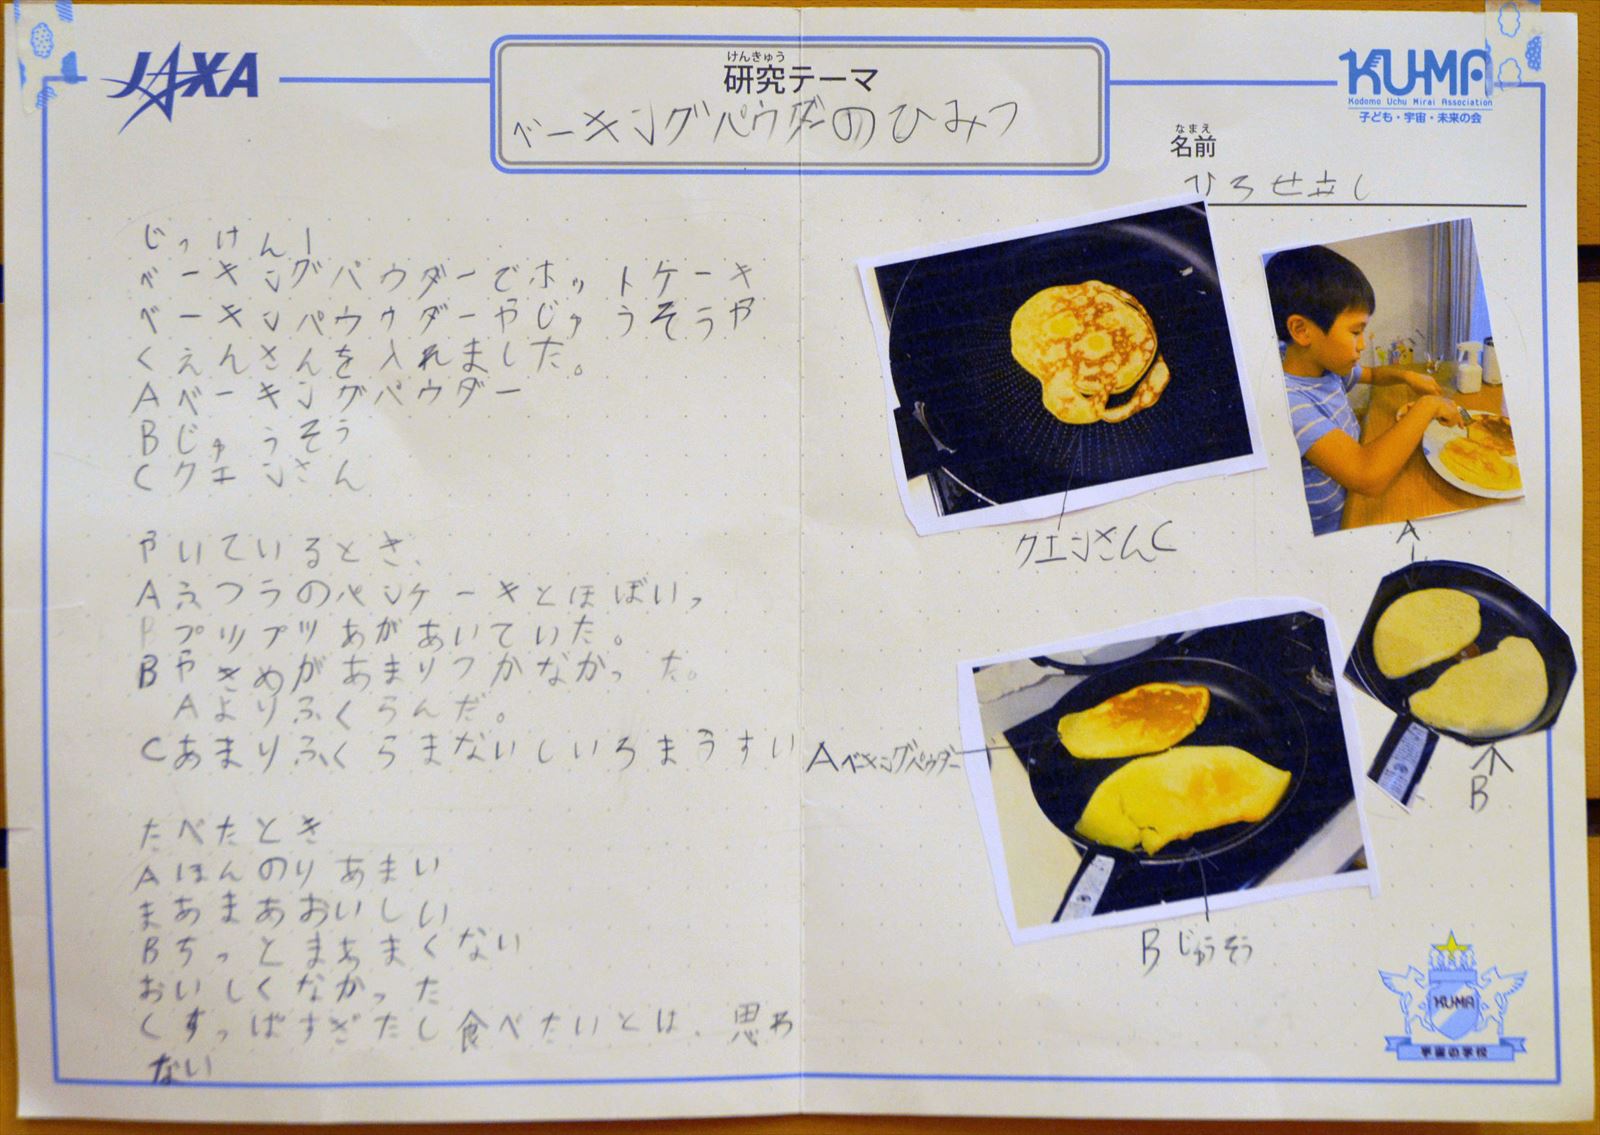 JAXA
けんきゅう
研究テーマ
ベーキングパウダーのひみつ
KU-MA
Kodomo Uchu Mirai Association
子ども・宇宙・未来の会
なまえ
名前
ひろせ
じっけん1
ベーキングパウダーでホットケーキ
ベーキンパウウダーやじゅうそうや
くえんさんを入れました。
Aベーキングパウダー
Bじゅうそう
Cクエンさん
やいているとき、
Aふつうのパンケーキとほぼいっ
プツプツあがあいていた。
Bやきめがあまりつかなかった。
Aよりふくらんだ。
Cあまりふくらまないしいろまうすい
たべたとき
Aほんのりあまい
まあまあおいしい
Bちっとまあまくない
おいしくなかった
Cすっぱすぎたし食べたいとは、思わ
ない
クエンさんC
A
B
Aベキングパウダー
Bじゅうそう
KU-MA
宇宙の学校